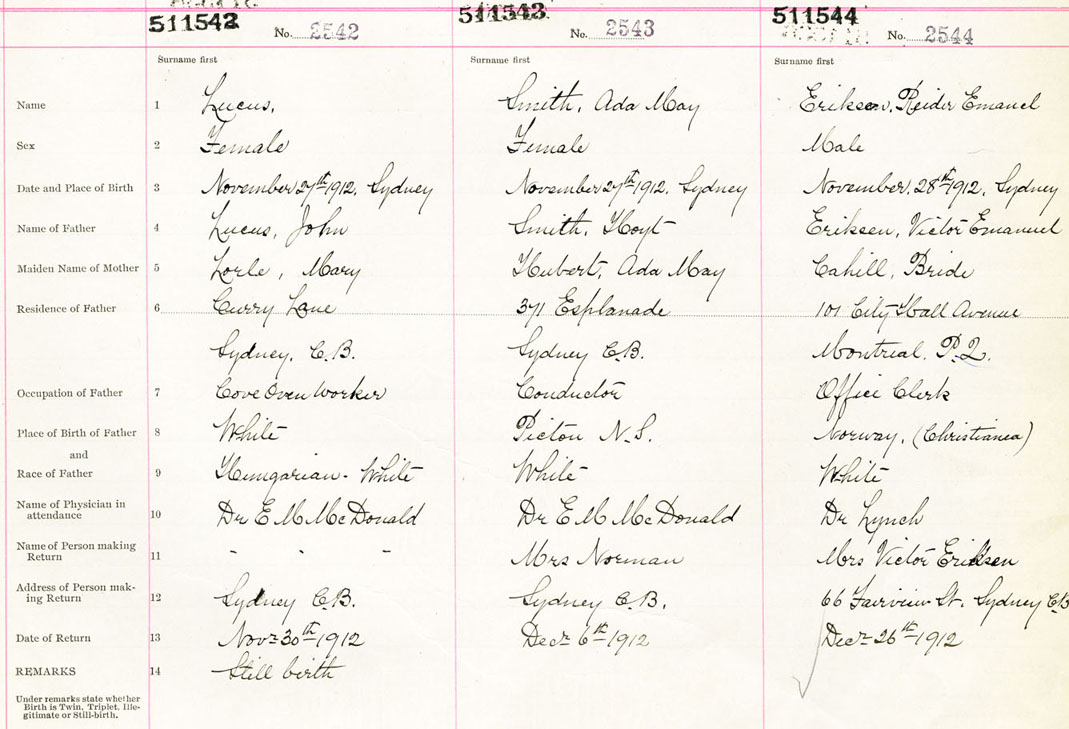 511542 511543 511544
No. 2542 No. 2543 No. 2544
Surname first Surname first Surname first
Name 1 Lucus, Smith, Ada May Eriksen, Reider Emanuel
Sex 2 Female Female Male
Date and Place of Birth 3 November 27th 1912, Sydney November 27th 1912, Sydney November, 28th 1912, Sydney
Name of Father 4 Lucus, John Smith, Hoyt Eriksen, Victor Emanuel
Maiden Name of Mother 5 Lorle, Mary Hubert, Ada May Cahill, Bride
Residence of Father 6 Curry Lane 371 Esplanade 101 City Hall Avenue
Sydney, C.B. Sydney C.B. Montreal, P.Q.
Occupation of Father 7 Cove Oven Worker Conductor Office Clerk
Place of Birth of Father 8 White Picton N.S. Norway, (Christianea)
and
Race of Father 9 Hungarian - White White White
Name of Physician in
attendance 10 Dr E M McDonald Dr E M McDonald Dr Lynch
Name of Person making
Return 11 - - - Mrs Norman Mrs Victor Eriksen
Address of Person mak-
ing Return 12 Sydney C.B. Sydney C.B. 66 Fairview St. Sydney C.B
Date of Return 13 Novr 30th 1912 Decr 6th 1912 Decr 26th 1912
REMARKS 14 Still birth
Under remarks state whether
Birth is Twin, Triplet, Ille-
gitimate or Still-birth.